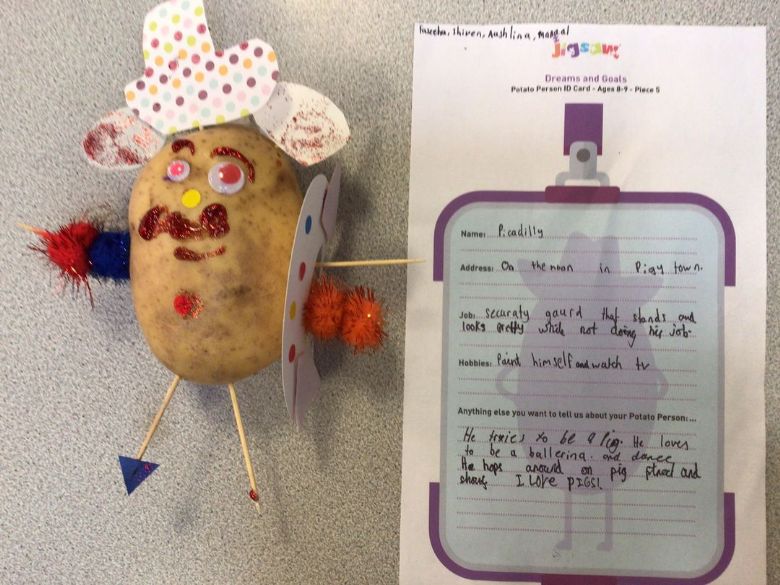 Shiven, Aashlina,
Jigsaw
Dreams and Goals
Potato Person ID Card - Ages 8-9 - Piece 5
Name: Picadilly
Address: On the moon in Pigy town.
Job: securaty gaurd that stands and
looks pretty while not doing his job.
Hobbies: Paint himself and watch tv
Anything else you want to tell us about your Potato Person:...
He tries to be a Pig. He loves
to be a ballerina. and dance
He hops around on pig and
I Love PIGS!